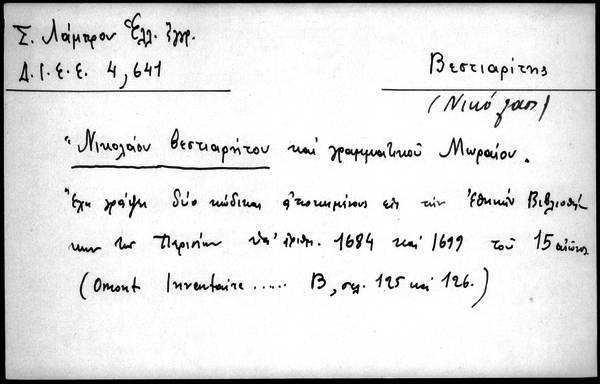 Σ. Λάμπρου Ἑλλ. ἔγγρ.
Δ.Ι.Ε.Ε. 4, 641
Βεστιαρίτης
(Νικόλαος)
"Νικολάου Βεστιαρήτου καὶ γραμματικοῦ Μωραίου.
"ἔχει γράψει δύο κώδικας ἀποκειμένους εἰς τὴν Ἐθνικὴν Βιβλιοθή-
κην τῶν Παρισίων ὑπ' ἀριθ. 1684 καὶ 1699 τοῦ 15 αἰῶνος
(Omont Inventaire ..... B, σελ. 125 καὶ 126.)